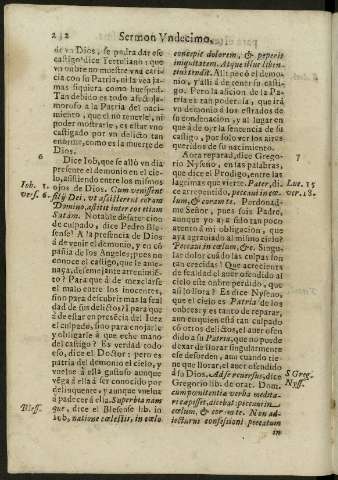 232 Sermon Vndecimo,
de vn Dios, se podra dar ese
castigo? dice Tertuliano: que
vn onbre no muestre vna cari-
cia con su Patria, ni la vea ja-
mas siquiera como huesped.
Tan debido es todo afecto a-
moroso a la Patria del naci-
miento, que el no tenerle, ni
poder mostrarle, es estar vno
castigado por vn delicto tan
enorme, como es la muerte de
Dios.
6
Dice Iob, que se alló vn dia
presente el demonio en el cie-
lo, asistiendo entre los mismos
Iob. 1. ojos de Dios. Cum venissent
vers. 6. filij Dei, vt assisterent coram
Domino, astitit inter eos etiam
Satam. Notable desaten-cion
de culpado, dice Pedro Ble-
sense! A la presencia de Dios
á de venir el demonio, y en cō
pañia de los Angeles; pues no
conoce el castigo, que le ame-
naça, de semejante atrevimiē-
to? Para qué á de mezclarse
el malo entre los inocentes,
sino para descubrir mas la feal
dad de sus delictos; i para que
á de estar en presencia del Iuez
el culpado, sino para enojarle,
y obligarle á que eche mano
del castigo? Es verdad todo
eso, dice el Doctor; pero es
patria del demonio el cielo, y
vuelve á ella gustoso aunque
vēga á ella á ser conocido por
delinquente, y aunque vuelva
a padecer á ella. Superbia nam
Bless. que, dice el Blesense lib. in
Iob, natione cœlestis, in cœlo
concepit dolorem, & peperit
iniquitatem. Atque illuc liben-
tius tendit. Alli pecó el demo-
nio, y alli á de tener su casti-
go. Pero la aficion de la Pa-
tria es tan poderosa, que irá
vn demonio á los estrados de
su condenacion, y al lugar en
que á de oyr la sentencia de su
castigo, por solo ver los aires
queridos de su nacimiento.
7
Aora reparad, dice Grego-
rio Nyseno, en las palabras,
que dice el Prodigo, entre las
lagrimas que vierte. Pater, di- Luc. 15
ce arrepentido, peccavi in cœ- ver. 18.
lum, & coram te. Perdonad-
me Señor, pues sois Padre,
aunque yo aya sido tan poco
atento á mi obligacion, que
aya agraviado al mismo cielo:
Peccavi in cœlum, &c. Singu-
lar dolor! cuâdo las culpas son
tan crecidas! Que acreciente
su fealdad el aver ofendido al
cielo este onbre perdido, que
asi lo llora? Es dice Nyseno,
que el cielo es Patria de los
onbres; y es tanto de reparar,
aun en quien está tan culpado
cō otros delictos, el auer ofen
dido a su Patria, que no puede
dexar de llorar singularmente
ese desorden, aun cuando tiene
que llorar, el auer ofendido
á su Dios. Ad se reversus, dice S Greg.
Gregorio lib. de orat. Dom. Nyss.
cum pœnitentia verba medita-
retur apisset, dicebat peccavi in
cœlum, & coram te. Non ad-
iecturus confessioni peccatum
in